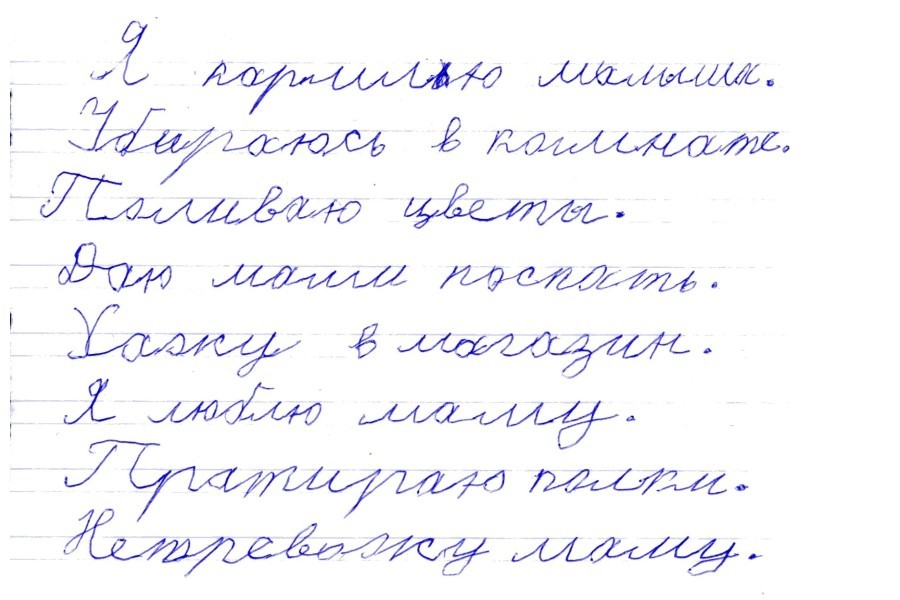 Я малыша.
Убираюсь в комнате.
Поливаю цветы.
Даю мами поспать.
Хожу в магазин.
Я люблю маму.
Пратираю полки.
Нетревожу маму.